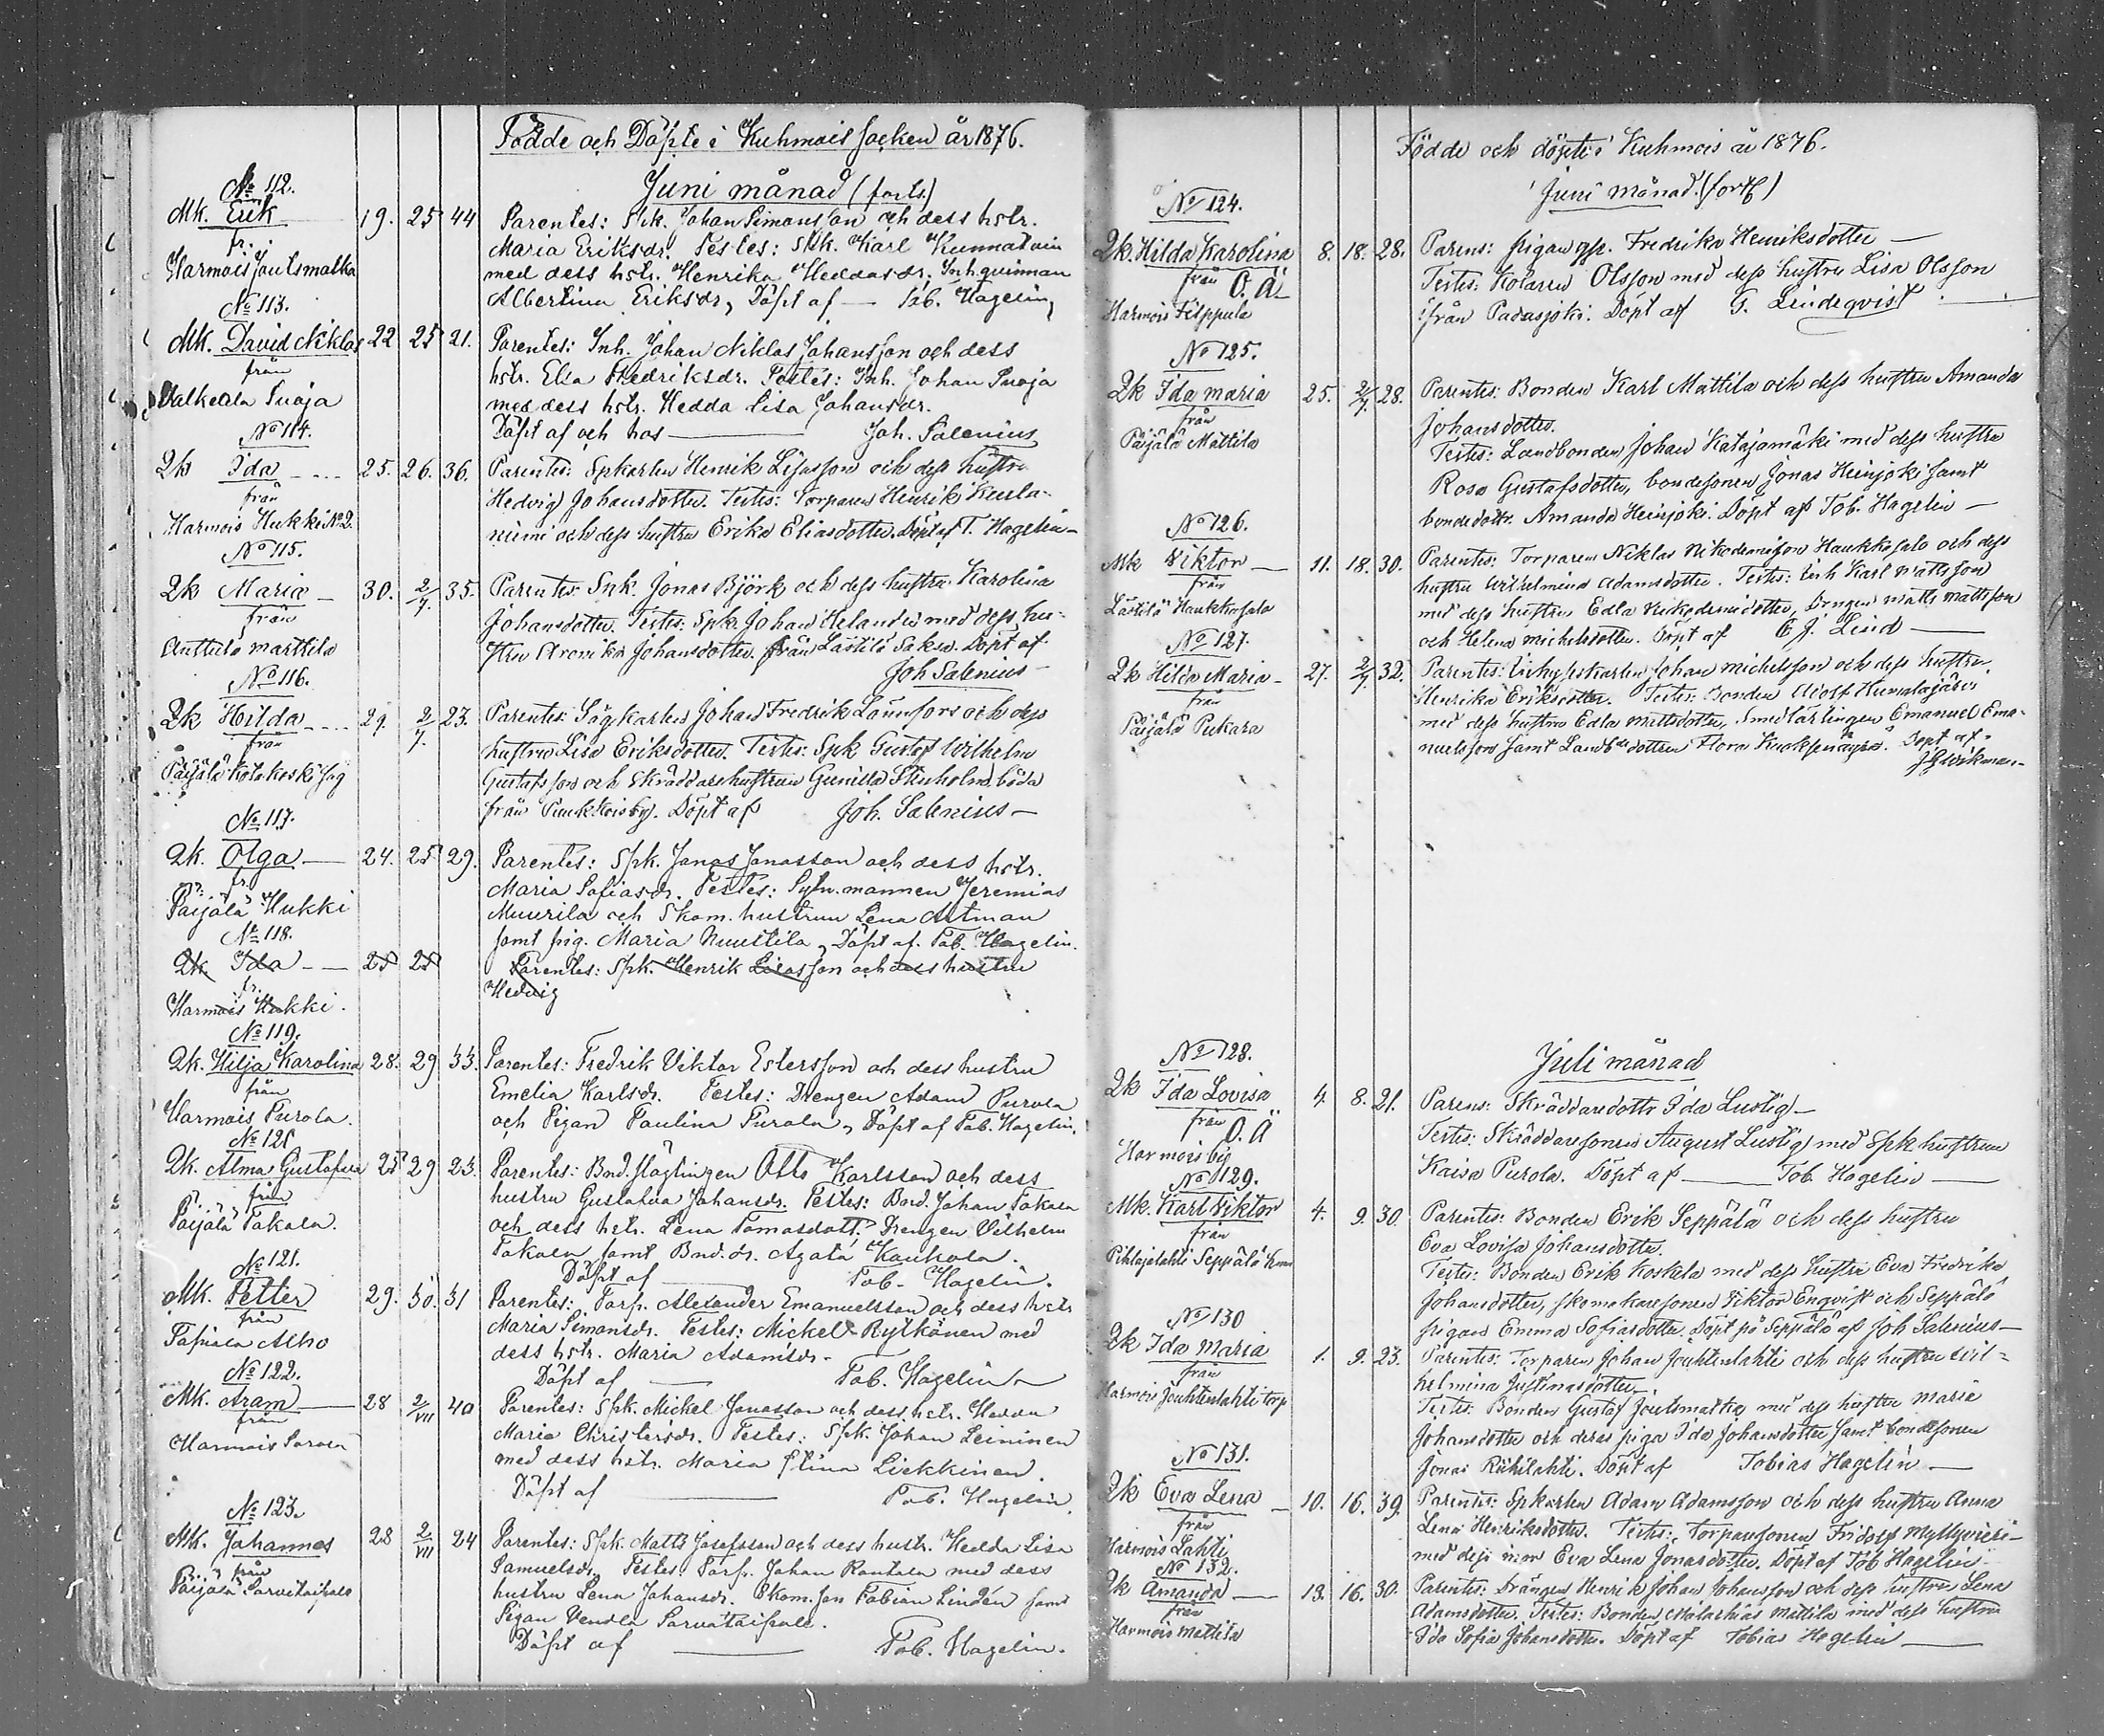 Födde och Döpte i Kuhmois Socken år 1876.
Juni månad (forts)
No 112.
Mk. Erik 19. 25 44 Parentes: Spk. Johan Simonsson och dess hstr.
fr. Maria Eriksdr. Testes: Spk. Karl
Harmois Joutsmatka med dess hstr. Henrika Heddasdr. Inh.quinnan
Albertina Eriksdr, Döpt af — Tob. Hagelin
No 113.
Mk. David Niklas 22 25 21. Parentes: Inh. Johan Niklas Johansson och dess
från hstr. Elsa Fredriksdr. Testes: Inh. Johan Suoja
Suoja med dess hstr. Hedda Lisa Johansdr.
Döpt af och hos — Joh. Salenius
No 114.
Qk Ida 25. 26. 36. Parentes: Spkarlen Henrik och dess hustru
från Hedvig Johansdotter. Testes: Torparen Henrik Kusta-
Harmois Hukki No 2. niemi och dess hustru Erika Eliasdotter. Döpt af T. Hagelin —
No 115.
Qk Maria 30. 2/7. 35. Parentes: Jonas Björk och dess hustru Karolina
från Johansdotter. Testes: Spk. Johan Helander med dess hu-
Anttula Marttila stru Johansdotter. från Lästilä Döpt af
Joh Salenius —
No 116.
Qk Hilda 29. 2/7. 23. Parentes: Sågkarlen Johan Fredrik Lönnfors och dess
från hustru Lisa Eriksdotter. Testes: Spk Gustaf Wilhelm
Päijälä Kolukoski såg Gustafsson och Skräddarehustrun Gunilla Stenholm, båda
från by. Döpt af Joh. Salenius —
No 117.
Qk. Olga 24. 25 29. Parentes: Spk. Jonas Jonasson och dess hstr.
fr. Maria Sofiasdr. Testes: Sytn.mannen Jeremias
Päijälä Hukki Muurila och Skom. hustrun Lena Astman
samt pig. Maria Nuustila, Döpt af Tob. Hagelin.
No 118.
Qk. Ida 25 25 Parentes: Spk. Henrik och dess hustru
fr. Hedvig
Harmois Hukki.
No 119.
Qk. Hilja Karolina 28. 29 33. Parentes: Fredrik Viktor Estersson och dess hustru
från Emelia Karlsdr. Testes: Drengen Adam Purola
Harmois Purola. och Pigan Paulina Purola, Döpt af Tob. Hagelin.
No 120
Qk. Alma Gustafva 25 29 23. Parentes: Bnd. Otto Karlsson och dess
från hustru Gustafva Johansdr. Testes: Bnd. Johan Takala
Päijälä Takala. och dess hstr. Lena Tomasdott. Drengen Vilhelm
Takala samt Bnd. dr. Agata Kauhala.
Döpt af Tob. Hagelin.
No 121.
Mk. Petter 29. 30. 31 Parentes: Torp. Alexander Emanuelsson och dess hstr
från Maria Simonsdr. Testes: Mickel Rytkönen med
Alho dess hstr. Maria Adamsdr.
Döpt af — Tob. Hagelin
No 122.
Mk. Aram 28 2/VII 40 Parentes: Spk. Mickel Jonasson och dess hstr. Hedda
från Maria Christersdr. Testes: Spk. Johan Leininen
Harmois med dess hstr. Maria Stina Liekkinen.
Döpt af — Tob. Hagelin
No 123.
Mk. Johannes 28 2/VII 24 Parentes: Spk. Matts Josefsson och dess hustr. Hedda Lisa
från Samuelsdr. Testes: Torp. Johan Rantala med dess
Päijälä hustru Lena Johansdr. Skom. son Fabian Lindén samt
Pigan Vendla
Döpt af — Tob. Hagelin.
Födde och döpte i Kuhmois år 1876.
Juni månad. (forts)
No 124.
Qk. Hilda Karolina 8. 18. 28. Parens: pigan Fredrika Henriksdotter —
från O. Ä Testes: Kolaren Olsson med dess hustru Lisa Olsson
Harmois Filppula från Padasjoki. Döpt af G. Lindeqvist
No 125.
Qk Ida Maria 25. 2/7. 28. Parentes: Bonden Karl Mattila och dess hustru Amanda
från Johansdotter.
Päijälä Mattila Testes: Landbonden Johan Katajamäki med dess hustru
Rosa Gustafsdotter, bondesonen Jonas Heinjoki samt
bondedottr. Amanda Heinjoki. Döpt af Tob. Hagelin —
No 126.
Mk Viktor 11. 18. 30. Parentes: Torparen Niklas Nikodemisson Haukkasalo och dess
från hustru Wilhelmina Adamsdotter. Testes: Inh Karl Mattsson
Lästilä Haukkasalo med dess hustru Edla Nikodemidotter, Drengen Matts Mattsson
och Helena Michelsdotter. Döpt af Lind —
No 127.
Qk Hilda Maria 27. 2/7. 32. Parentes: Johan Michelsson och dess hustru
från Henrika Eriksdotter. Testes: Bonden Adolf
Päijälä Pukara med dess hustru Edla Mattsdotter, Smedlärlingen Emanuel Ema-
nuelsson samt dottren Flora Döpt af
Wikman.
Juli månad
No 128.
Qk Ida Lovisa 4. 8. 21. Parens: Skräddaredottr Ida Lustig —
från O. Ä Testes: Skräddaresonen August Lustig med Spk hustrun
Harmois by Kaisa Purola. Döpt af — Tob. Hagelin —
No 129.
Mk. Karl Viktor 4. 9. 30. Parentes: Bonden Erik Seppälä och dess hustru
från Eva Lovisa Johansdotter.
Pihlajalahti Seppälä Testes: Bonden Erik Koskela med dess hustru Eva Fredrika
Johansdotter, skomakaresonen Viktor Enqvist och Seppälä
pigan Emma Sofiasdotter. Döpt på Seppälä af Joh Salenius —
No 130
Qk Ida Maria 1. 9. 23. Parentes: Torparen Johan Jouhtenlahti och dess hustru Wil-
från helmina Justinasdotter —
Harmois Jouhtenlahti torp Testes: Bonden Gustaf Joutsmatka med dess hustru Maria
Johansdotter och deras piga Ida Johansdotter samt bondesonen
Jonas Riihilahti. Döpt af Tobias Hagelin —
No 131.
Qk Eva Lena 10. 16. 39. Parentes: Spkarlen Adam Adamsson och dess hustru Anna
från Lena Henriksdotter. Testes: Torparesonen Fridolf
Harmois Lahti med dess mor Eva Lena Jonasdotter. Döpt af Tob Hagelin
No 132.
Qk Amanda 13. 16. 30. Parentes: Drängen Henrik Johan Johansson och dess hustru Lena
från Adamsdotter. Testes: Bonden Malachias Mattila med dess hustru
Harmois Mattila Ida Sofia Johansdotter. Döpt af Tobias Hagelin —